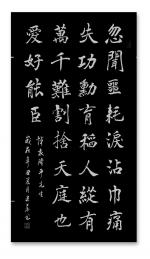 忽聞噩耗淚沾巾痛
失功勳育稻人縱有
萬千難割捨天庭也
愛好能臣
悼袁隆平先生
辛丑